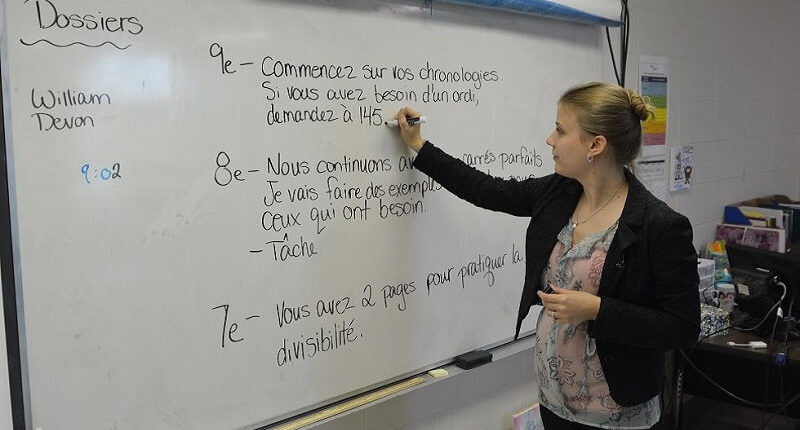 Dossiers
William
Devon
9:02
9e – Commencez sur vos chronologies.
Si vous avez besoin d'un ordi,
demandez à 145.
8e – Nous continuons carrés parfaits
Je vais faire des exemples
ceux qui ont besoin.
– Tâche
7e – Vous avez 2 pages pour pratiquer la
divisibilité.